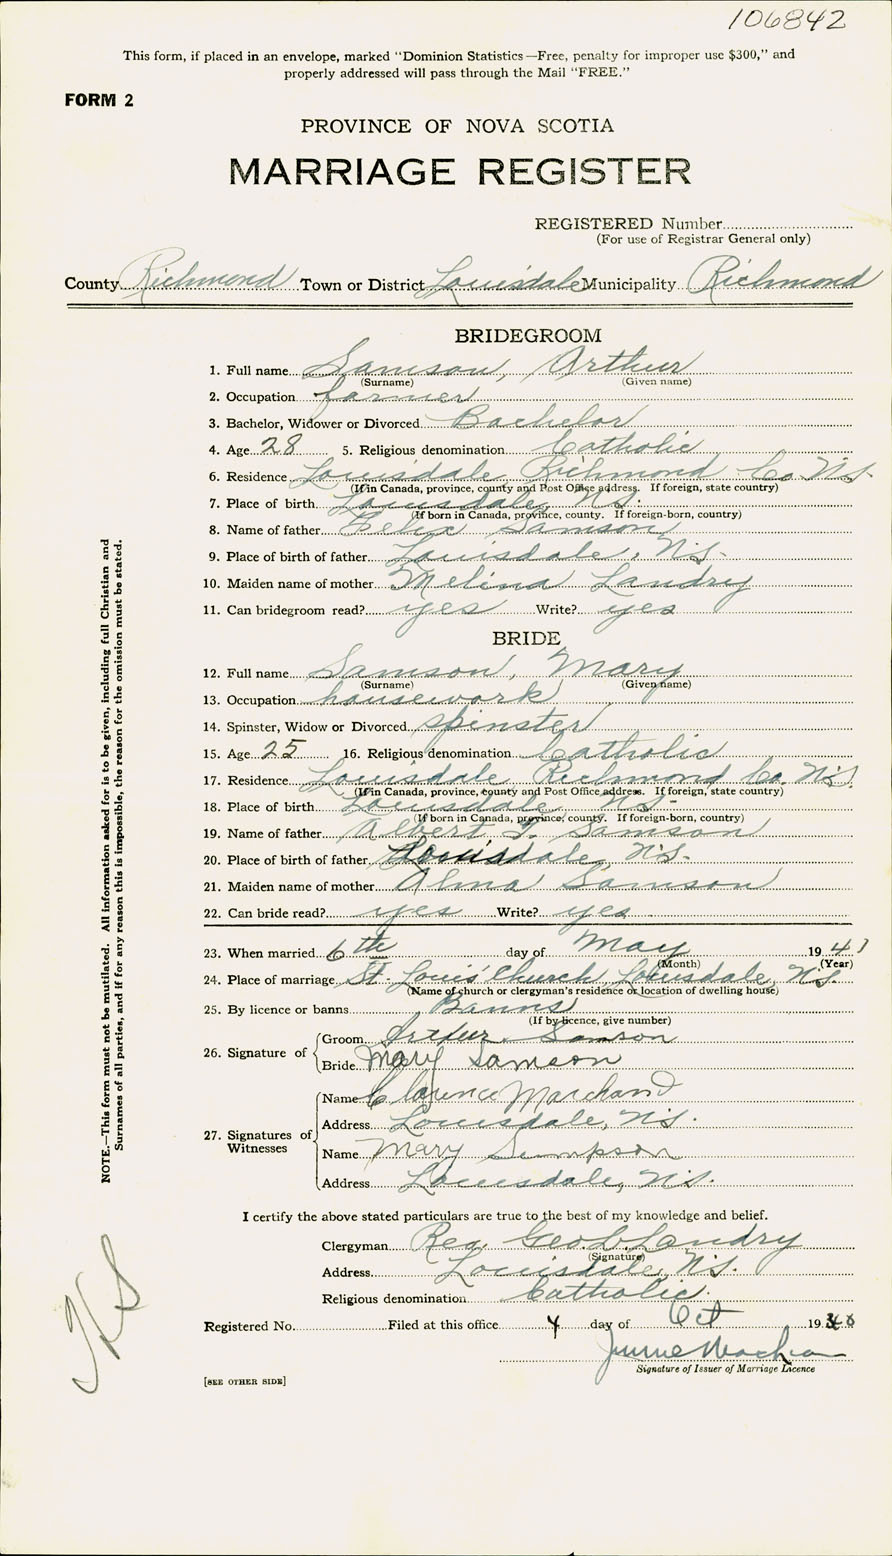 106842
This form, if placed in an envelope, marked "Dominion Statistics—Free, penalty for improper use $300," and
properly addressed will pass through the Mail "FREE."
FORM 2
PROVINCE OF NOVA SCOTIA
MARRIAGE REGISTER
REGISTERED Number
(For use of Registrar General only)
County Richmond Town or District Louisdale Municipality Richmond
BRIDEGROOM
1. Full name Samson, Arthur
(Surname) (Given name)
2. Occupation farmer
3. Bachelor, Widower or Divorced Bachelor
4. Age 28 5. Religious denomination Catholic
6. Residence Louisdale Richmond Co. N.S.
(If in Canada, province, county and Post Office address. If foreign, state country)
7. Place of birth Louisdale, N.S.
(If born in Canada, province, county. If foreign-born, country)
8. Name of father Felix Samson
9. Place of birth of father Louisdale, N.S.
10. Maiden name of mother Melina Landry
11. Can bridegroom read? yes Write? yes
BRIDE
12. Full name Samson, Mary
(Surname) (Given name)
13. Occupation housework
14. Spinster, Widow or Divorced spinster
15. Age 25 16. Religious denomination Catholic
17. Residence Louisdale Richmond Co. N.S.
(If in Canada, province, county and Post Office address. If foreign, state country)
18. Place of birth Louisdale, N.S.
(If born in Canada, province, county. If foreign-born, country)
19. Name of father Albert Samson
20. Place of birth of father Louisdale, N.S.
21. Maiden name of mother Alma Samson
22. Can bride read? yes Write? yes
23. When married 6th day of May 1941
(Month) (Year)
24. Place of marriage St. Louis Church Louisdale, N.S.
(Name of church or clergyman's residence or location of dwelling house)
25. By licence or banns Banns
(If by licence, give number)
26. Signature of Groom Arthur Samson
Bride Mary Samson
27. Signatures of Witnesses Name Clarence Marchand
Address Louisdale, N.S.
Name Mary Sampson
Address Louisdale, N.S.
I certify the above stated particulars are true to the best of my knowledge and belief.
Clergyman Geo Landry
(Signature)
Address Louisdale, N.S.
Religious denomination Catholic
Registered No. Filed at this office 4 day of Oct 19
Signature of Issuer of Marriage Licence
[SEE OTHER SIDE]
NOTE.—This form must not be mutilated. All information asked for is to be given, including full Christian and
Surnames of all parties, and if for any reason this is impossible, the reason for the omission must be stated.